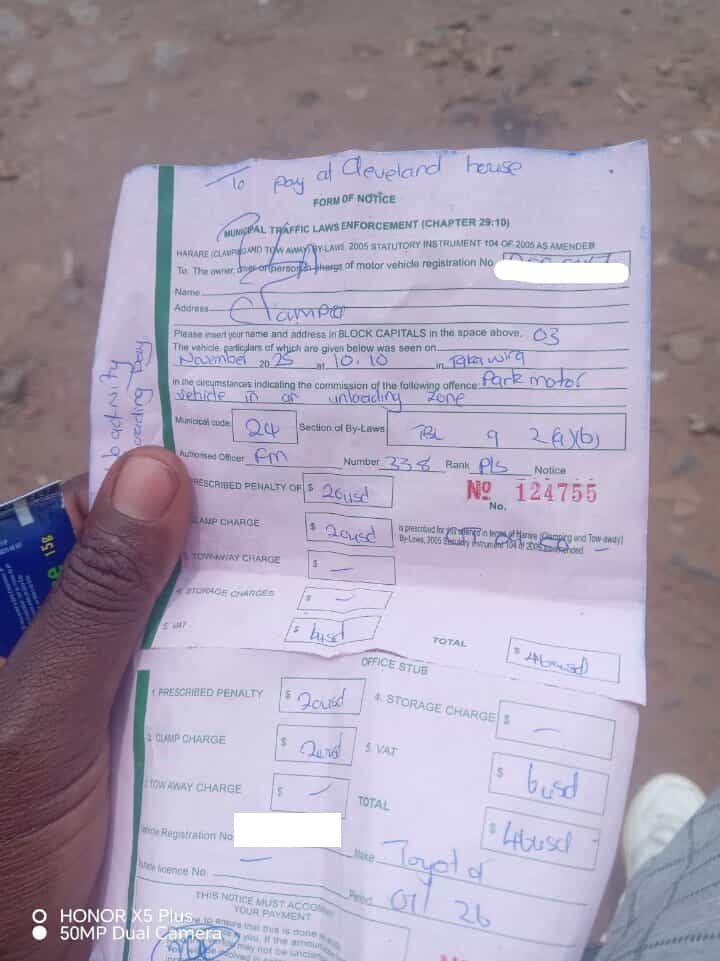 To pay at Cleveland house
FORM OF NOTICE
MUNICIPAL TRAFFIC LAWS ENFORCEMENT (CHAPTER 29:10)
HARARE (CLAMPING AND TOW AWAY) BY-LAWS, 2005 STATUTORY INSTRUMENT 104 OF 2005 AS AMENDED
To: The owner, driver or person in charge of motor vehicle registration No.
Name
Address Clamped
Please insert your name and address in BLOCK CAPITALS in the space above. 03
The vehicle, particulars of which are given below was seen on
November 20 25 at 10.10 in Takawira
in the circumstances indicating the commission of the following offence: Park motor
vehicle in or unloading zone
Municipal code: 24 Section of By-Laws TBL 9 2(a)(b)
Authorised Officer FM Number 338 Rank Pls Notice
No. Nº 124755
PRESCRIBED PENALTY OF $ 20usd
CLAMP CHARGE $ 20usd is prescribed for this offence in terms of Harare (Clamping and Tow-away)
By-Laws, 2005 Statutory Instrument 104 of 2005 as amended
3. TOW-AWAY CHARGE $ –
4. STORAGE CHARGES $ –
5. VAT $ usd TOTAL $ 46usd
OFFICE STUB
1. PRESCRIBED PENALTY $ 20usd 4. STORAGE CHARGE $ –
2. CLAMP CHARGE $ 20usd 5. VAT $ 6usd
3. TOW AWAY CHARGE $ – TOTAL $ 46usd
Vehicle Registration No. Make Toyota
Vehicle licence No. – Period 01/26
THIS NOTICE MUST ACCOM
YOUR PAYMENT
to ensure that this is done
you. If the amoun
may not be unclam
loading bay
HONOR X5 Plus
50MP Dual Camera